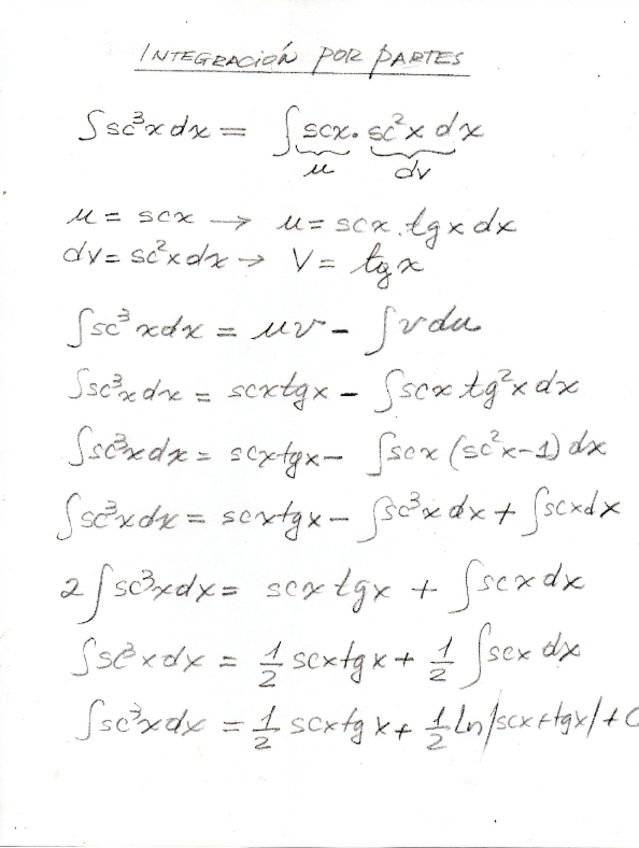 INTEGRACIÓN POR PARTES
∫sc³x dx = ∫scx. sc²x dx
u dv
u = scx → u = scx.tgx dx
dv = sc²x dx → V = tgx
∫sc³xdx = uv - ∫vdu
∫sc³x dx = scxtgx - ∫scx tg²x dx
∫sc³xdx = scxtgx - ∫scx (sc²x-1) dx
∫sc³x dx = scxtgx - ∫sc³x dx + ∫scxdx
2∫sc³xdx = scx tgx + ∫scx dx
∫sc³xdx = 1/2 scxtgx + 1/2 ∫scx dx
∫sc³xdx = 1/2 scxtgx + 1/2 Ln|scx+tgx| + C